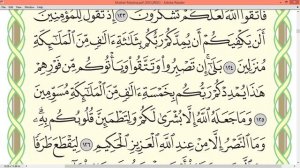 فَاتَّقُوا اللَّهَ لَعَلَّكُمْ تَشْكُرُونَ ١٢٣ إِذْ تَقُولُ لِلْمُؤْمِنِينَ
أَلَن يَكْفِيَكُمْ أَن يُمِدَّكُمْ رَبُّكُم بِثَلَٰثَةِ ءَالَٰفٍ مِّنَ الْمَلَٰٓئِكَةِ
مُنزَلِينَ ١٢٤ بَلَىٰٓ إِن تَصْبِرُوا وَتَتَّقُوا وَيَأْتُوكُم مِّن فَوْرِهِمْ
هَٰذَا يُمْدِدْكُمْ رَبُّكُم بِخَمْسَةِ ءَالَٰفٍ مِّنَ الْمَلَٰٓئِكَةِ مُسَوِّمِينَ
١٢٥ وَمَا جَعَلَهُ اللَّهُ إِلَّا بُشْرَىٰ لَكُمْ وَلِتَطْمَئِنَّ قُلُوبُكُم بِهِۦ
وَمَا النَّصْرُ إِلَّا مِنْ عِندِ اللَّهِ الْعَزِيزِ الْحَكِيمِ ١٢٦ لِيَقْطَعَ طَرَفًا